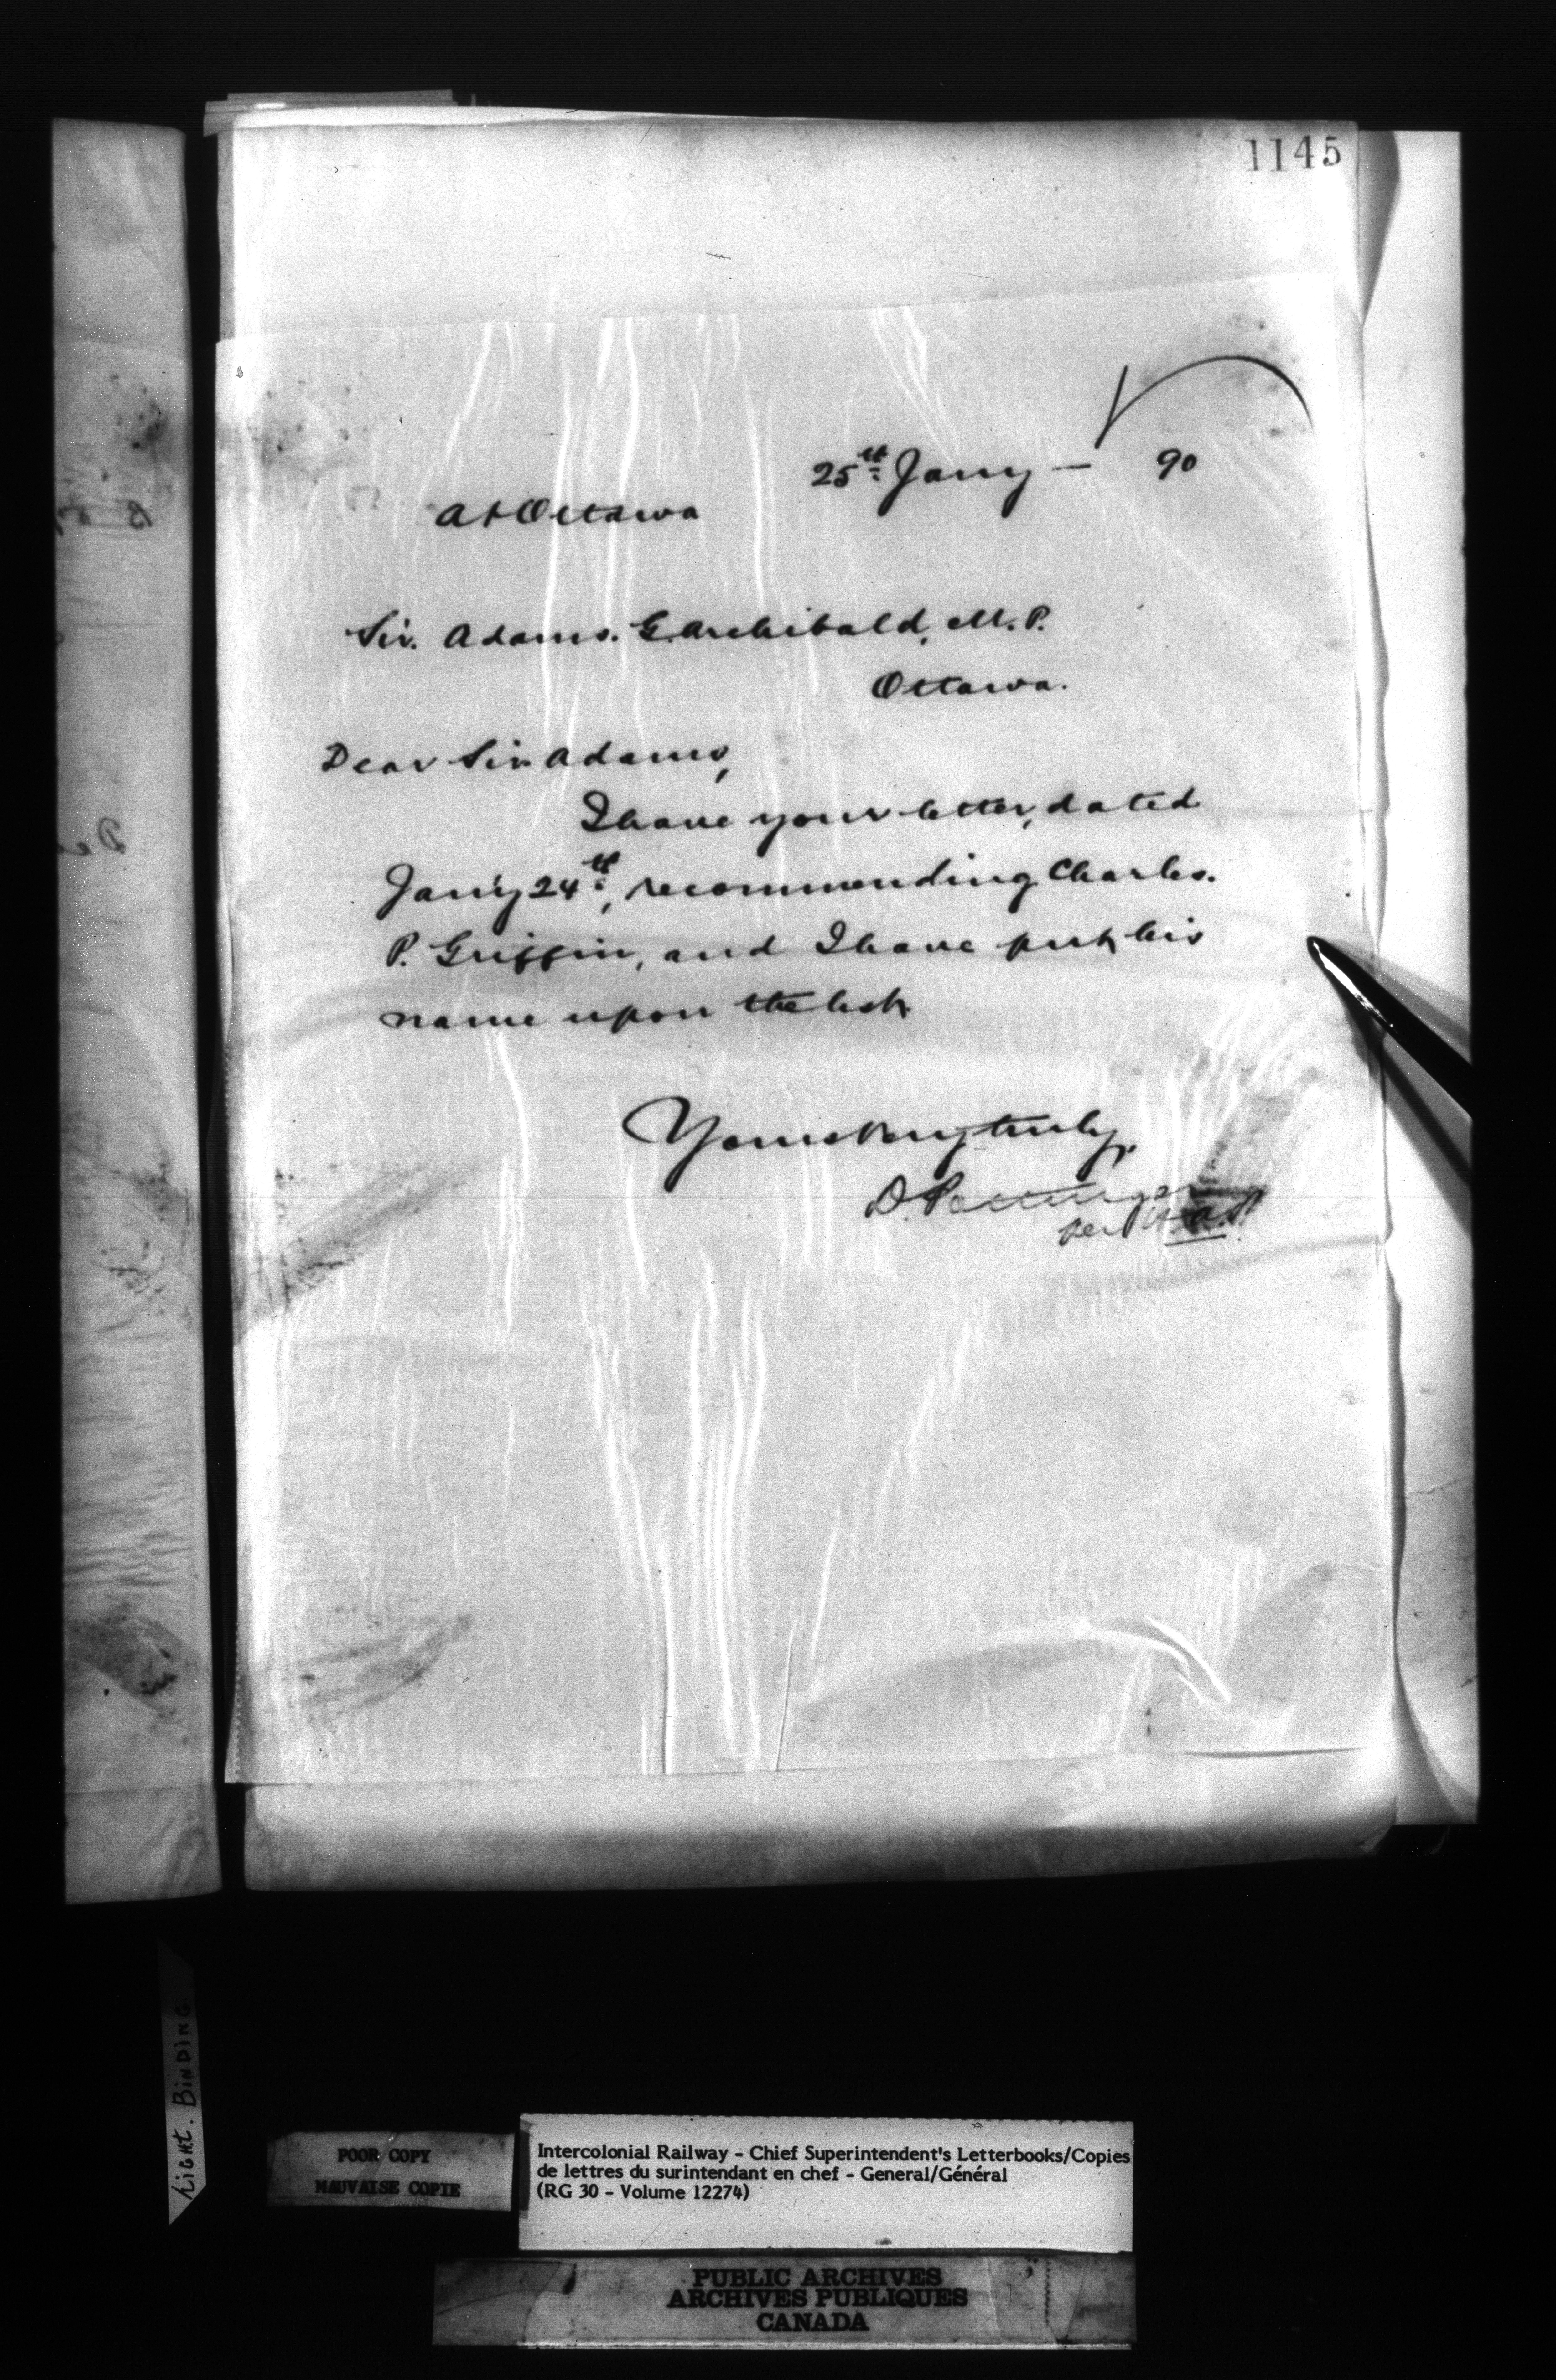 1145
25th Jany — 90
At Ottawa
Sir. Adams. G. Archibald, M.P.
Ottawa.
Dear Sir Adams,
I have your letter, dated
Jan'y 24th, recommending Charles.
P. Griffin, and I have put his
name upon the list
Yours very truly,
D. Pottinger
per
Light. BINDING
POOR COPY
MAUVAISE COPIE
Intercolonial Railway - Chief Superintendent's Letterbooks/Copies
de lettres du surintendant en chef - General/Général
(RG 30 - Volume 12274)
PUBLIC ARCHIVES
ARCHIVES PUBLIQUES
CANADA